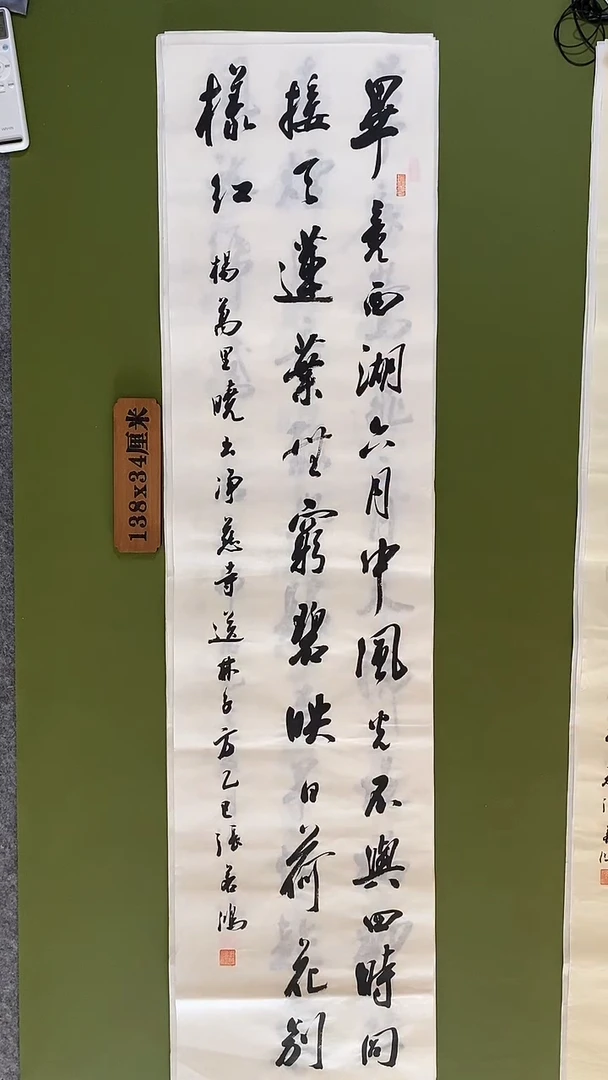 畢竟西湖六月中風光不與四時同
接天蓮葉無窮碧映日荷花別
樣紅
楊萬里曉出净慈寺送林子方乙巳張若鴻
138x34厘米